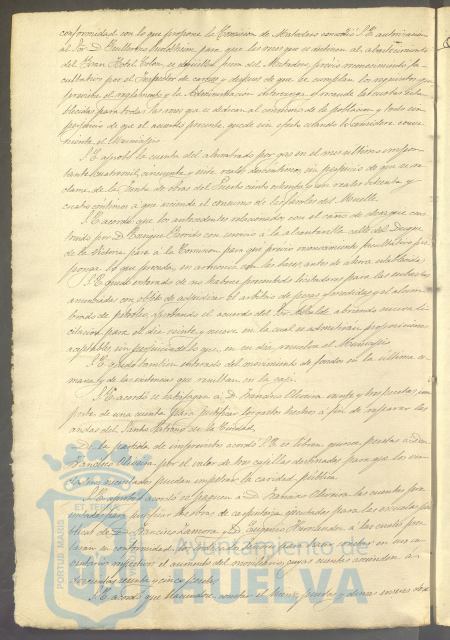 conformidad con lo que propone la Comision de Matadero concedió S.E. autorizacion
al Sor. D. Guillermo Sundheim para que las reses que se destinen al abastecimiento
del Gran Hotel Colon, se degüellen fuera del Matadero previo reconocimiento fa-
cultativo por el Inspector de carnes y despues de que se cumplan los requisitos que
previene el reglamento y la Administracion
blecidas para todas las reses que se dedican al consumo de la poblacion y todo sin
perjuicio de que el acuerdo presente, quede sin efecto cuando lo considere conve-
niente el Municipio
S.E. aprobó la cuenta del alumbrado por gas en el mes ultimo
cincuenta y reales centimos, sin perjuicio de que se re-
clame de la Junta de obras del Puerto ciento reales setenta y
cuatro centimos a que asciende el consumo de los faroles del Muelle.
S.E. acordó que los antecedentes relacionados con el caño de desagüe cons-
truido por D. Enrique con servicio á la alcantarilla calle del Duque
de la Victoria pasen á la Comision para que previo reconocimiento facultativo pro-
ponga lo que proceda, en armonia con las bases antes de ahora establecidas
S.E. quedó enterado de no haberse presentado licitadores para las subastas
anunciadas con objeto de adjudicar el arbitrio de pesas y medidas y el alum-
brado de petroleo, aprobando el acuerdo del Sor. Alcalde abriendo nueva li-
citacion para el dia veinte y nueve en la cual se admitiran proposiciones
aceptables sin perjuicio de lo que en su dia resuelva el Municipio
S.E. quedó tambien enterado del movimiento de fondos en la ultima se-
mana y de las existencias que resultan en la caja.
S.E. acordó se satisfagan a D. Francisco Oliveira veinte y tres pesetas, im-
porte de una cuenta para justificar los gastos hechos a fin de reparar las
andas del Santo Patrono de la Ciudad.
De la partida de imprevistos acordó S.E. se libren quince pesetas a D.
Francisco Oliveira por el valor de tres cajillas destinadas para que los
puedan impetrar la caridad pública.
S.E. aprobó y acordó se paguen a D. Francisco Oliveira las cuentas pre-
sentadas para justificar las obras de carpinteria efectuadas para las escuelas pú-
blicas de D. Francisco Zamora y D. Eugenio Hernandez a las cuales pres-
taron su conformidad los profesores
el aumento del mobiliario, cuyas cuentas ascienden á
cincuenta y cinco pesetas.
S.E. acordó que
PORTUS MARIS
ET TERRAE
Ayuntamiento de
HUELVA